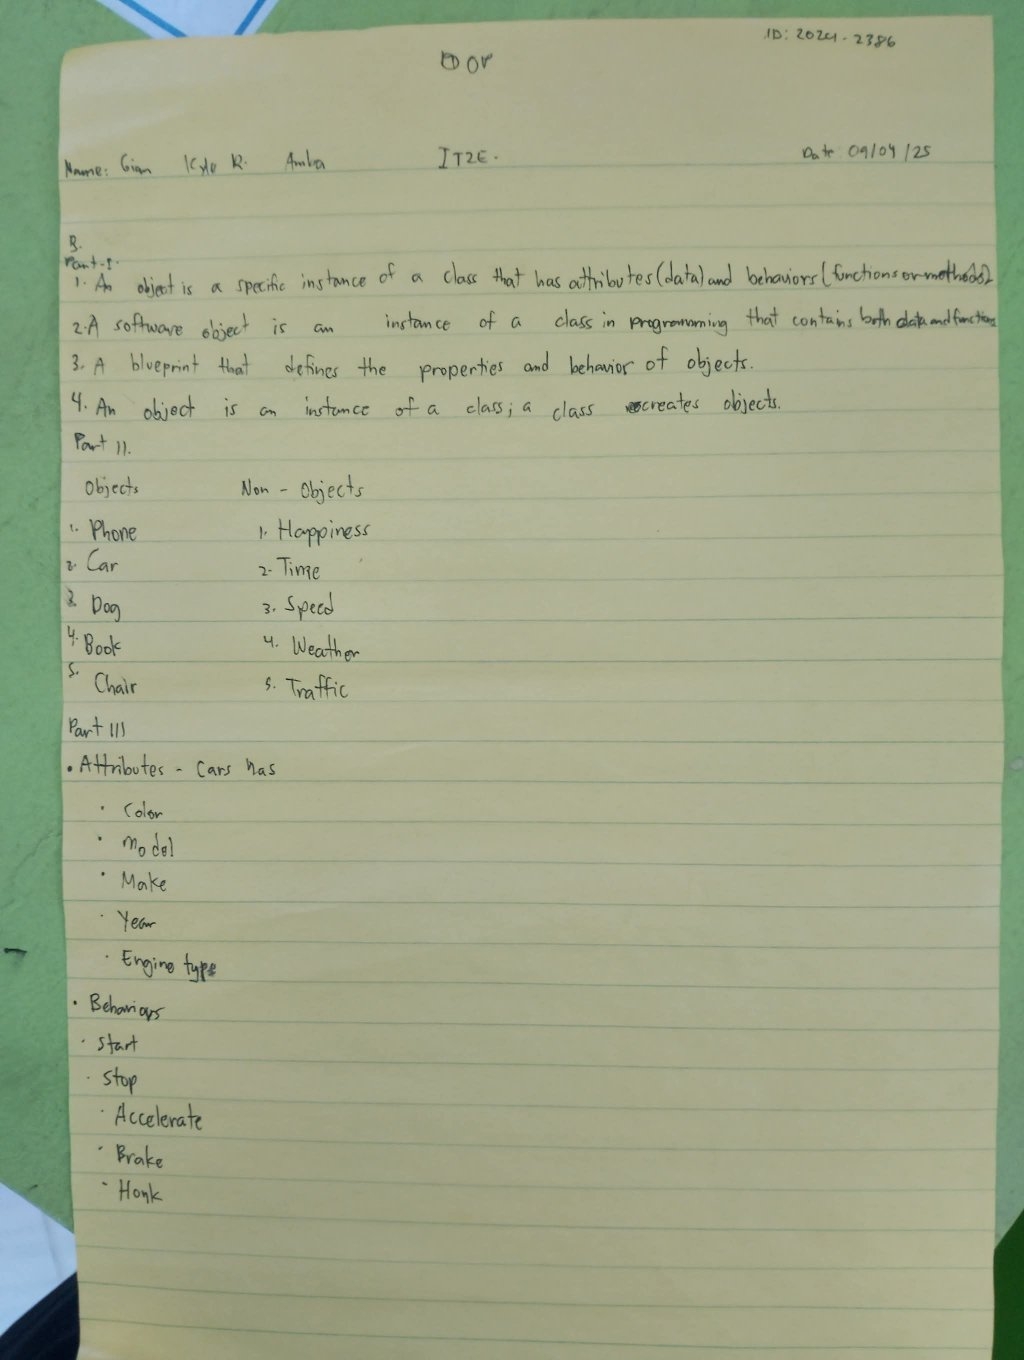 OOP
ID: 2024-2386
Name: Gian Kyle R. Amba IT2E. Date: 09/04/25
B.
Part-I.
1. An object is a specific instance of a class that has attributes (data) and behaviors (functions or methods).
2. A software object is an instance of a class in programming that contains both data and functions
3. A blueprint that defines the properties and behavior of objects.
4. An object is an instance of a class; a class creates objects.
Part II.
Objects Non - Objects
1. Phone 1. Happiness
2. Car 2. Time
3. Dog 3. Speed
4. Book 4. Weather
5. Chair 5. Traffic
Part III
• Attributes - Cars has
• Color
• Model
• Make
• Year
• Engine type
• Behaviors
• Start
• Stop
• Accelerate
• Brake
• Honk